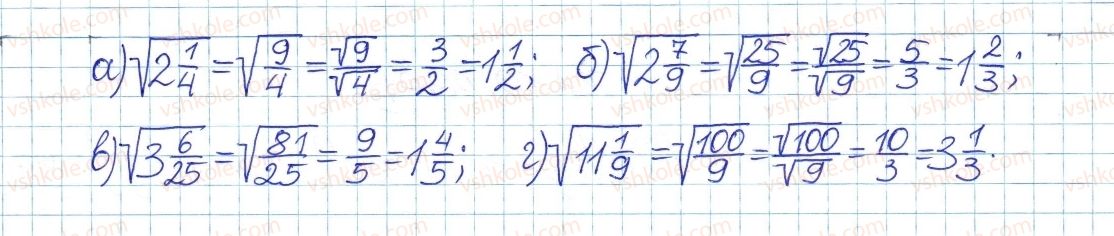 а) √(2 1/4) = √(9/4) = √9/√4 = 3/2 = 1 1/2; б) √(2 7/9) = √(25/9) = √25/√9 = 5/3 = 1 2/3;
в) √(3 6/25) = √(81/25) = 9/5 = 1 4/5; г) √(11 1/9) = √(100/9) = √100/√9 = 10/3 = 3 1/3.